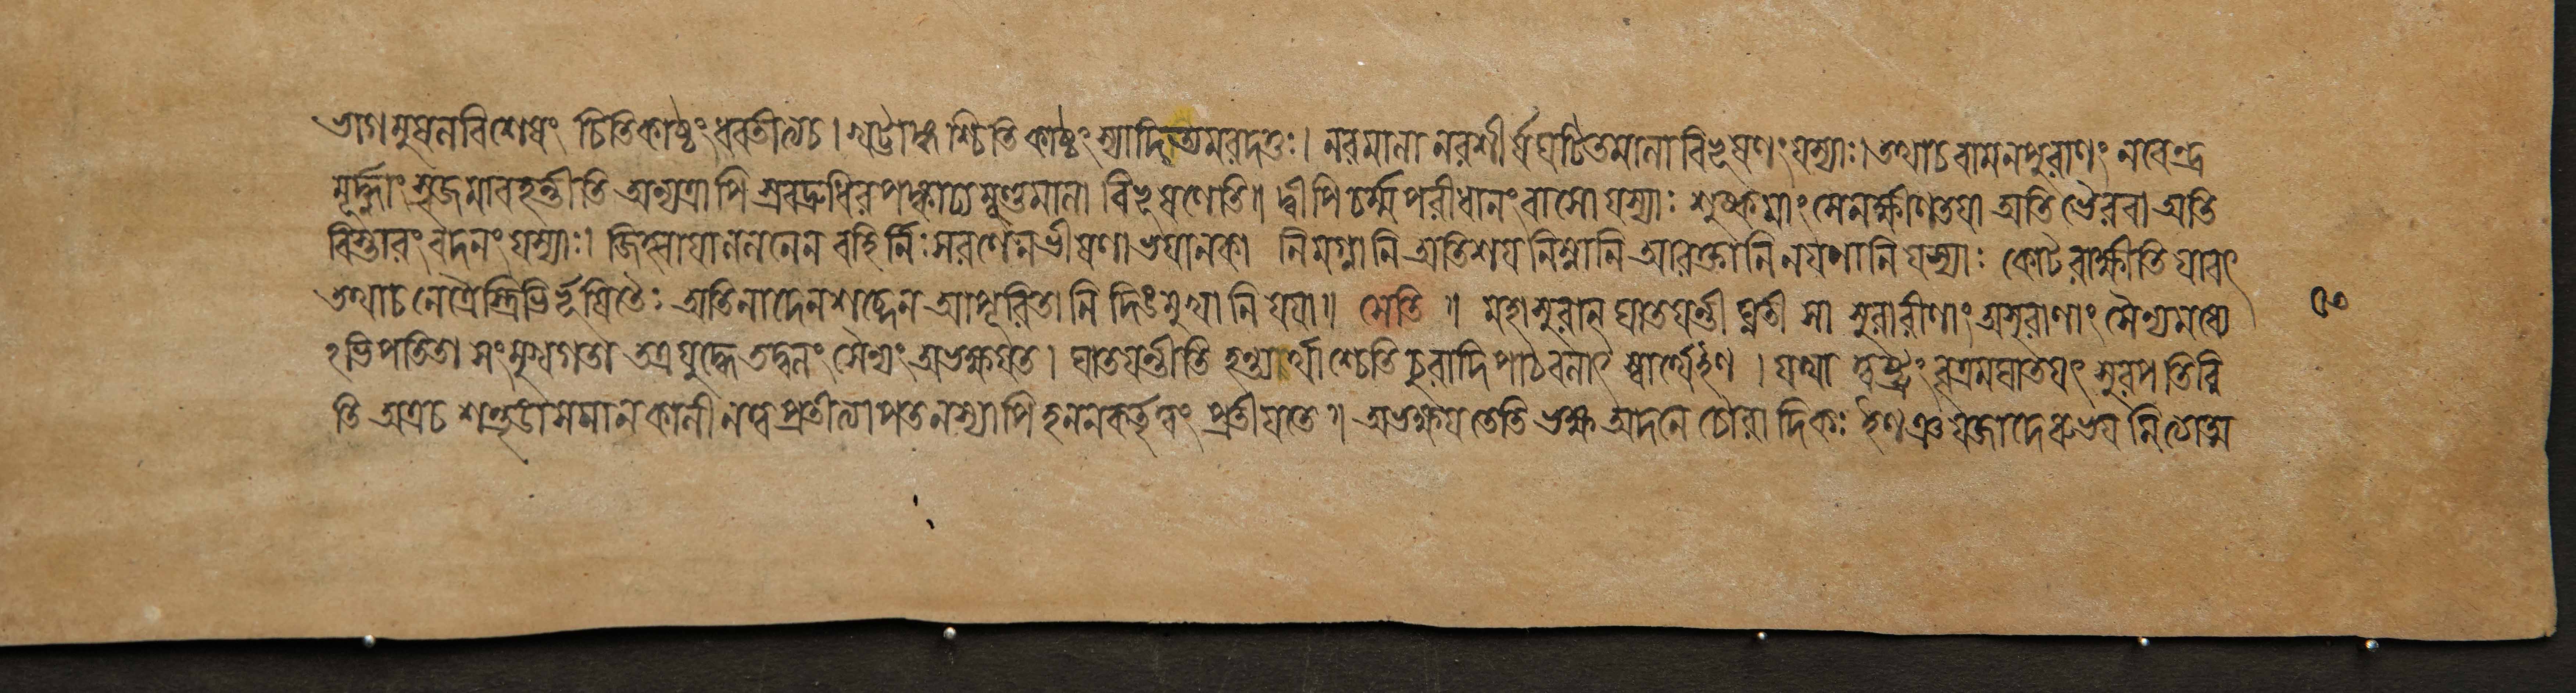 ভাগমুষলবিশেষং চিতিকাষ্ঠং ধবতীলচ। খট্টাঙ্গশ্চিতিকাষ্ঠং স্যাদিত্যমরদত্তঃ। নরমালা নরশীর্ষঘটিতমালা বিভূষণং যস্যাঃ। তথাচ বামনপুরাণং নবেন্দ্র
মূর্দ্ধ্নাং স্রজমাবহন্তীতি অন্যত্রাপি স্রবদ্রুধিরপঙ্কাঢ্য মুণ্ডমালা বিভূষণেতি॥ দ্বীপিচর্ম্মপরীধানং বাসো যস্যাঃ শুষ্কমাংসেনক্ষীণতযা অতিভৈরবা অতি
বিস্তারং বদনং যস্যাঃ। জিহ্বাযালননেন বহির্নিঃসরণেন ভীষণা ভযানকা নিমগ্নানি অতিশযনিম্নানি আরক্তানি নযনানি যস্যাঃ কোটরাক্ষীতি যাবৎ
তথাচ নেত্রৈস্ত্রিভির্ভূষিতৈঃ অতিনাদেন শব্দেন আপূরিতানি দিঙ্মুখানি যযা॥ সেতি॥ মহাসুরান্ ঘাতযন্তী ঘ্নতী সা সুরারীণাং অসুরাণাং সৈন্যমধ্যে
ঽভিপতিতা সংমুখগতা তত্র যুদ্ধে তদ্বলং সৈন্যং অভক্ষযত। ঘাতযন্তীতি হন্ত্যর্থাশ্চেতি চুরাদিপাঠবলাৎ স্বার্থে ইণ্। যথা ত্বাষ্ট্রং বৃত্রমঘাতযৎ সুরপতিরি
তি অত্রচ শত্রুডামমানকালীনস্বপ্রতীলাপতনস্যাপি হননকর্তৃত্বং প্রতীযতে॥ অভক্ষযতেতি ভক্ষ অদনে চৌরাদিকঃ ইণ্ঞ্যজাদেরুভযনিতোত্ম